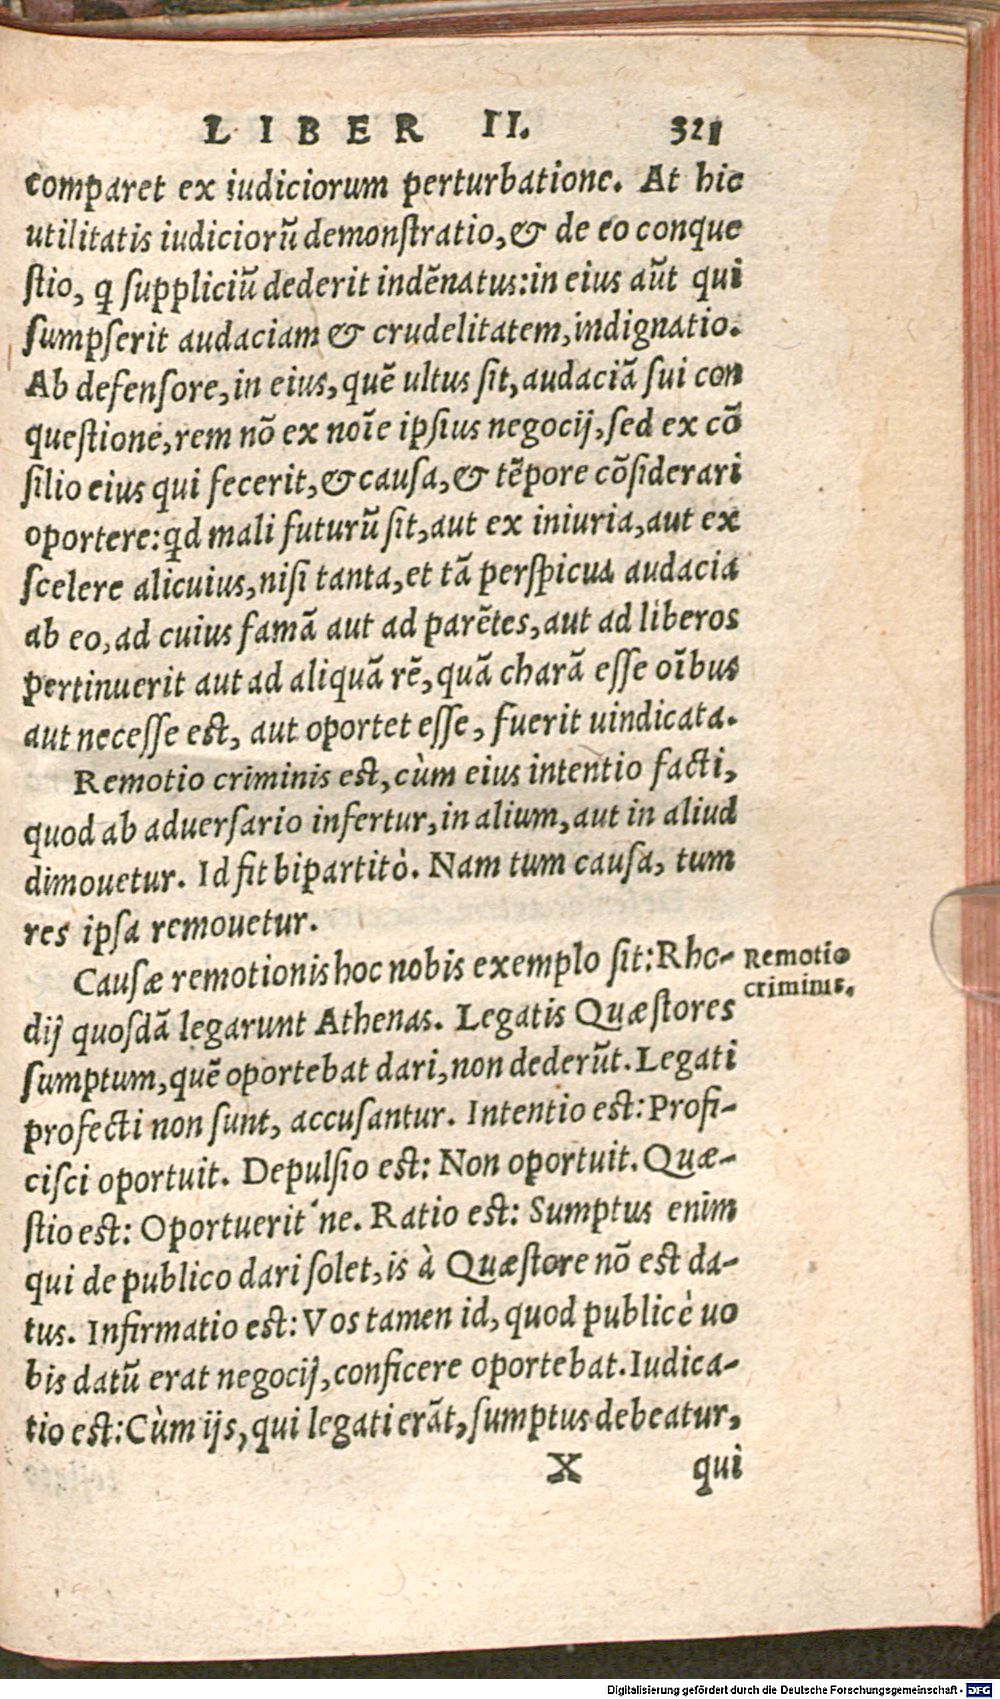 LIBER II. 321
comparet ex iudiciorum perturbatione. At hic
utilitatis iudiciorũ demonſtratio, & de eo conque
ſtio, ꝙ ſuppliciũ dederit indẽnatus: in eius aũt qui
ſumpſerit audaciam & crudelitatem, indignatio.
Ab defenſore, in eius, quẽ ultus ſit, audaciã ſui con
queſtione, rem nõ ex noĩe ipſius negocij, ſed ex cõ
ſilio eius qui fecerit, & cauſa, & tẽpore cõſiderari
oportere: qd mali futurũ ſit, aut ex iniuria, aut ex
ſcelere alicuius, niſi tanta, et tã perſpicua audacia
ab eo, ad cuius famã aut ad parẽtes, aut ad liberos
pertinuerit aut ad aliquã rẽ, quã charã eſſe oĩbus
aut neceſſe eſt, aut oportet eſſe, fuerit uindicata.
Remotio criminis eſt, cùm eius intentio facti,
quod ab aduerſario infertur, in alium, aut in aliud
dimouetur. Id fit bipartitò. Nam tum cauſa, tum
res ipſa remouetur.
Cauſæ remotionis hoc nobis exemplo ſit: Rho-
dij quoſdã legarunt Athenas. Legatis Quæſtores
ſumptum, quẽ oportebat dari, non dederũt. Legati
profecti non ſunt, accuſantur. Intentio eſt: Profi-
ciſci oportuit. Depulſio eſt: Non oportuit. Quæ-
ſtio eſt: Oportuerit'ne. Ratio eſt: Sumptus enim
qui de publico dari ſolet, is à Quæſtore nõ eſt da-
tus. Infirmatio eſt: Vos tamen id, quod publicè uo
bis datũ erat negocij, conficere oportebat. Iudica-
tio eſt: Cùm ijs, qui legati erãt, ſumptus debeatur,
X qui
Remotio
criminis.
Digitalisierung gefördert durch die Deutsche Forschungsgemeinschaft - DFG